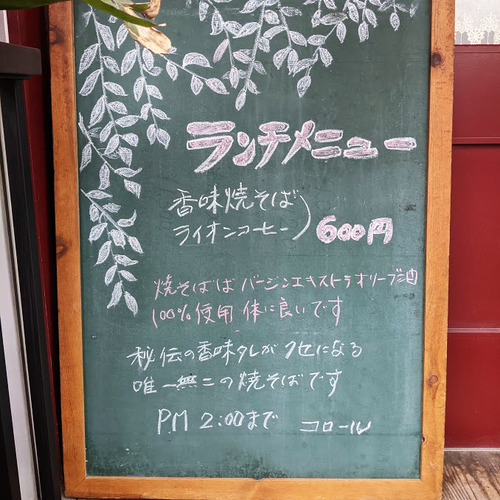 ランチメニュー
香味焼そば
ライオンコーヒー) 600円
焼そばは バージンエキストラオリーブ油
100%使用 体に良いです
秘伝の香味タレが クセになる
唯一無二の焼そばです
PM 2:00まで コロール